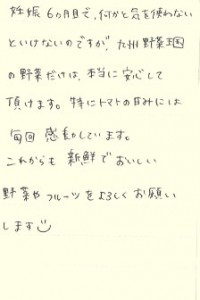 妊娠6カ月目で、何かと気を使わない
といけないのですが、九州野菜王国
の野菜だけは、本当に安心して
頂けます。特にトマトの甘みには
毎回感動しています。
これからも新鮮でおいしい
野菜やフルーツをよろしくお願い
します